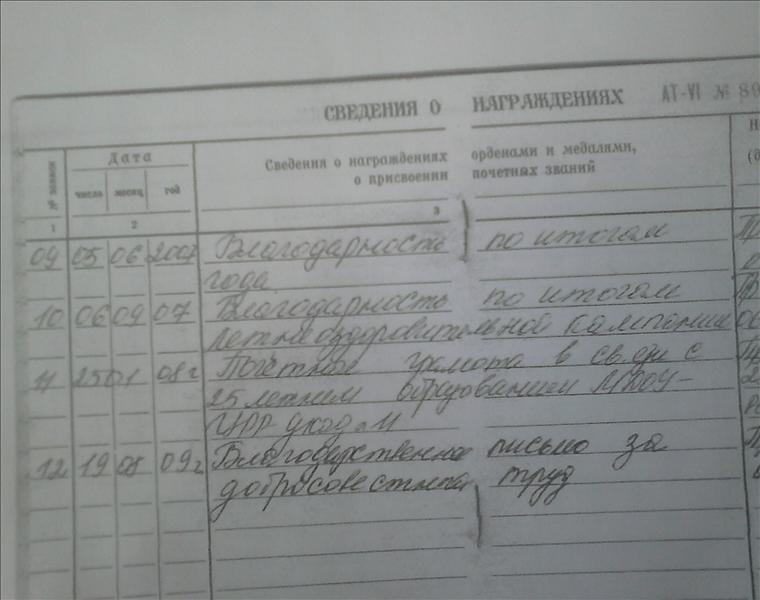 СВЕДЕНИЯ О НАГРАЖДЕНИЯХ АТ-VI № 89
№ записи Дата Сведения о награждениях орденами и медалями, Н
число месяц год о присвоении почетных званий (д
1 2 3
09 05 06 2007 Благодарность по итогам Пр
года
10 06 09 07 Благодарность по итогам Пр
летне оздоровительной кампании
11 25 01 08г Почетное грамота в связи с
25 летним образованием МДОУ-
ЦРР д/сад
12 19 08 09г Благодарственное письмо за
добросовестный труд